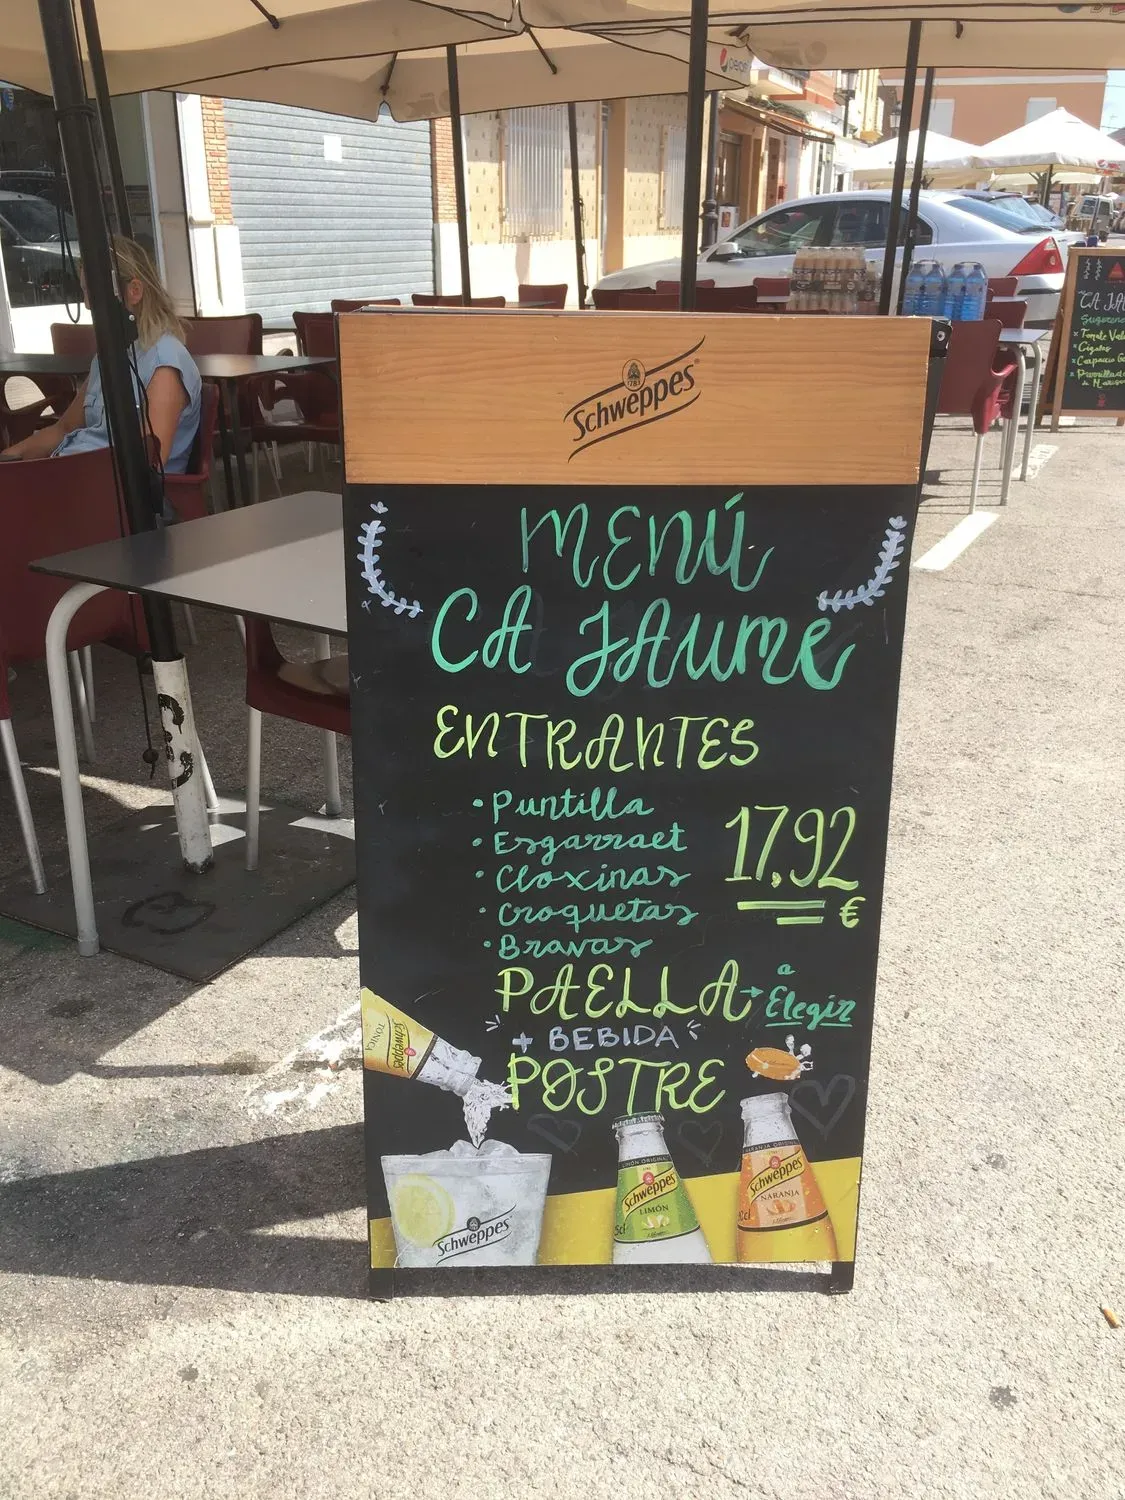 pepsi
Schweppes
1783
MENÚ
CA JAUME
ENTRANTES
· Puntilla
· Esgarraet
· Cloxinas
· Croquetas
· Bravas
17,92
€
PAELLA → a Elegir
+ BEBIDA
POSTRE
TONICA
Schweppes
Schweppes
LIMÓN ORIGINAL
Schweppes
LIMÓN
NARANJA ORIGINAL
Schweppes
NARANJA
CA JA
Tomate Val